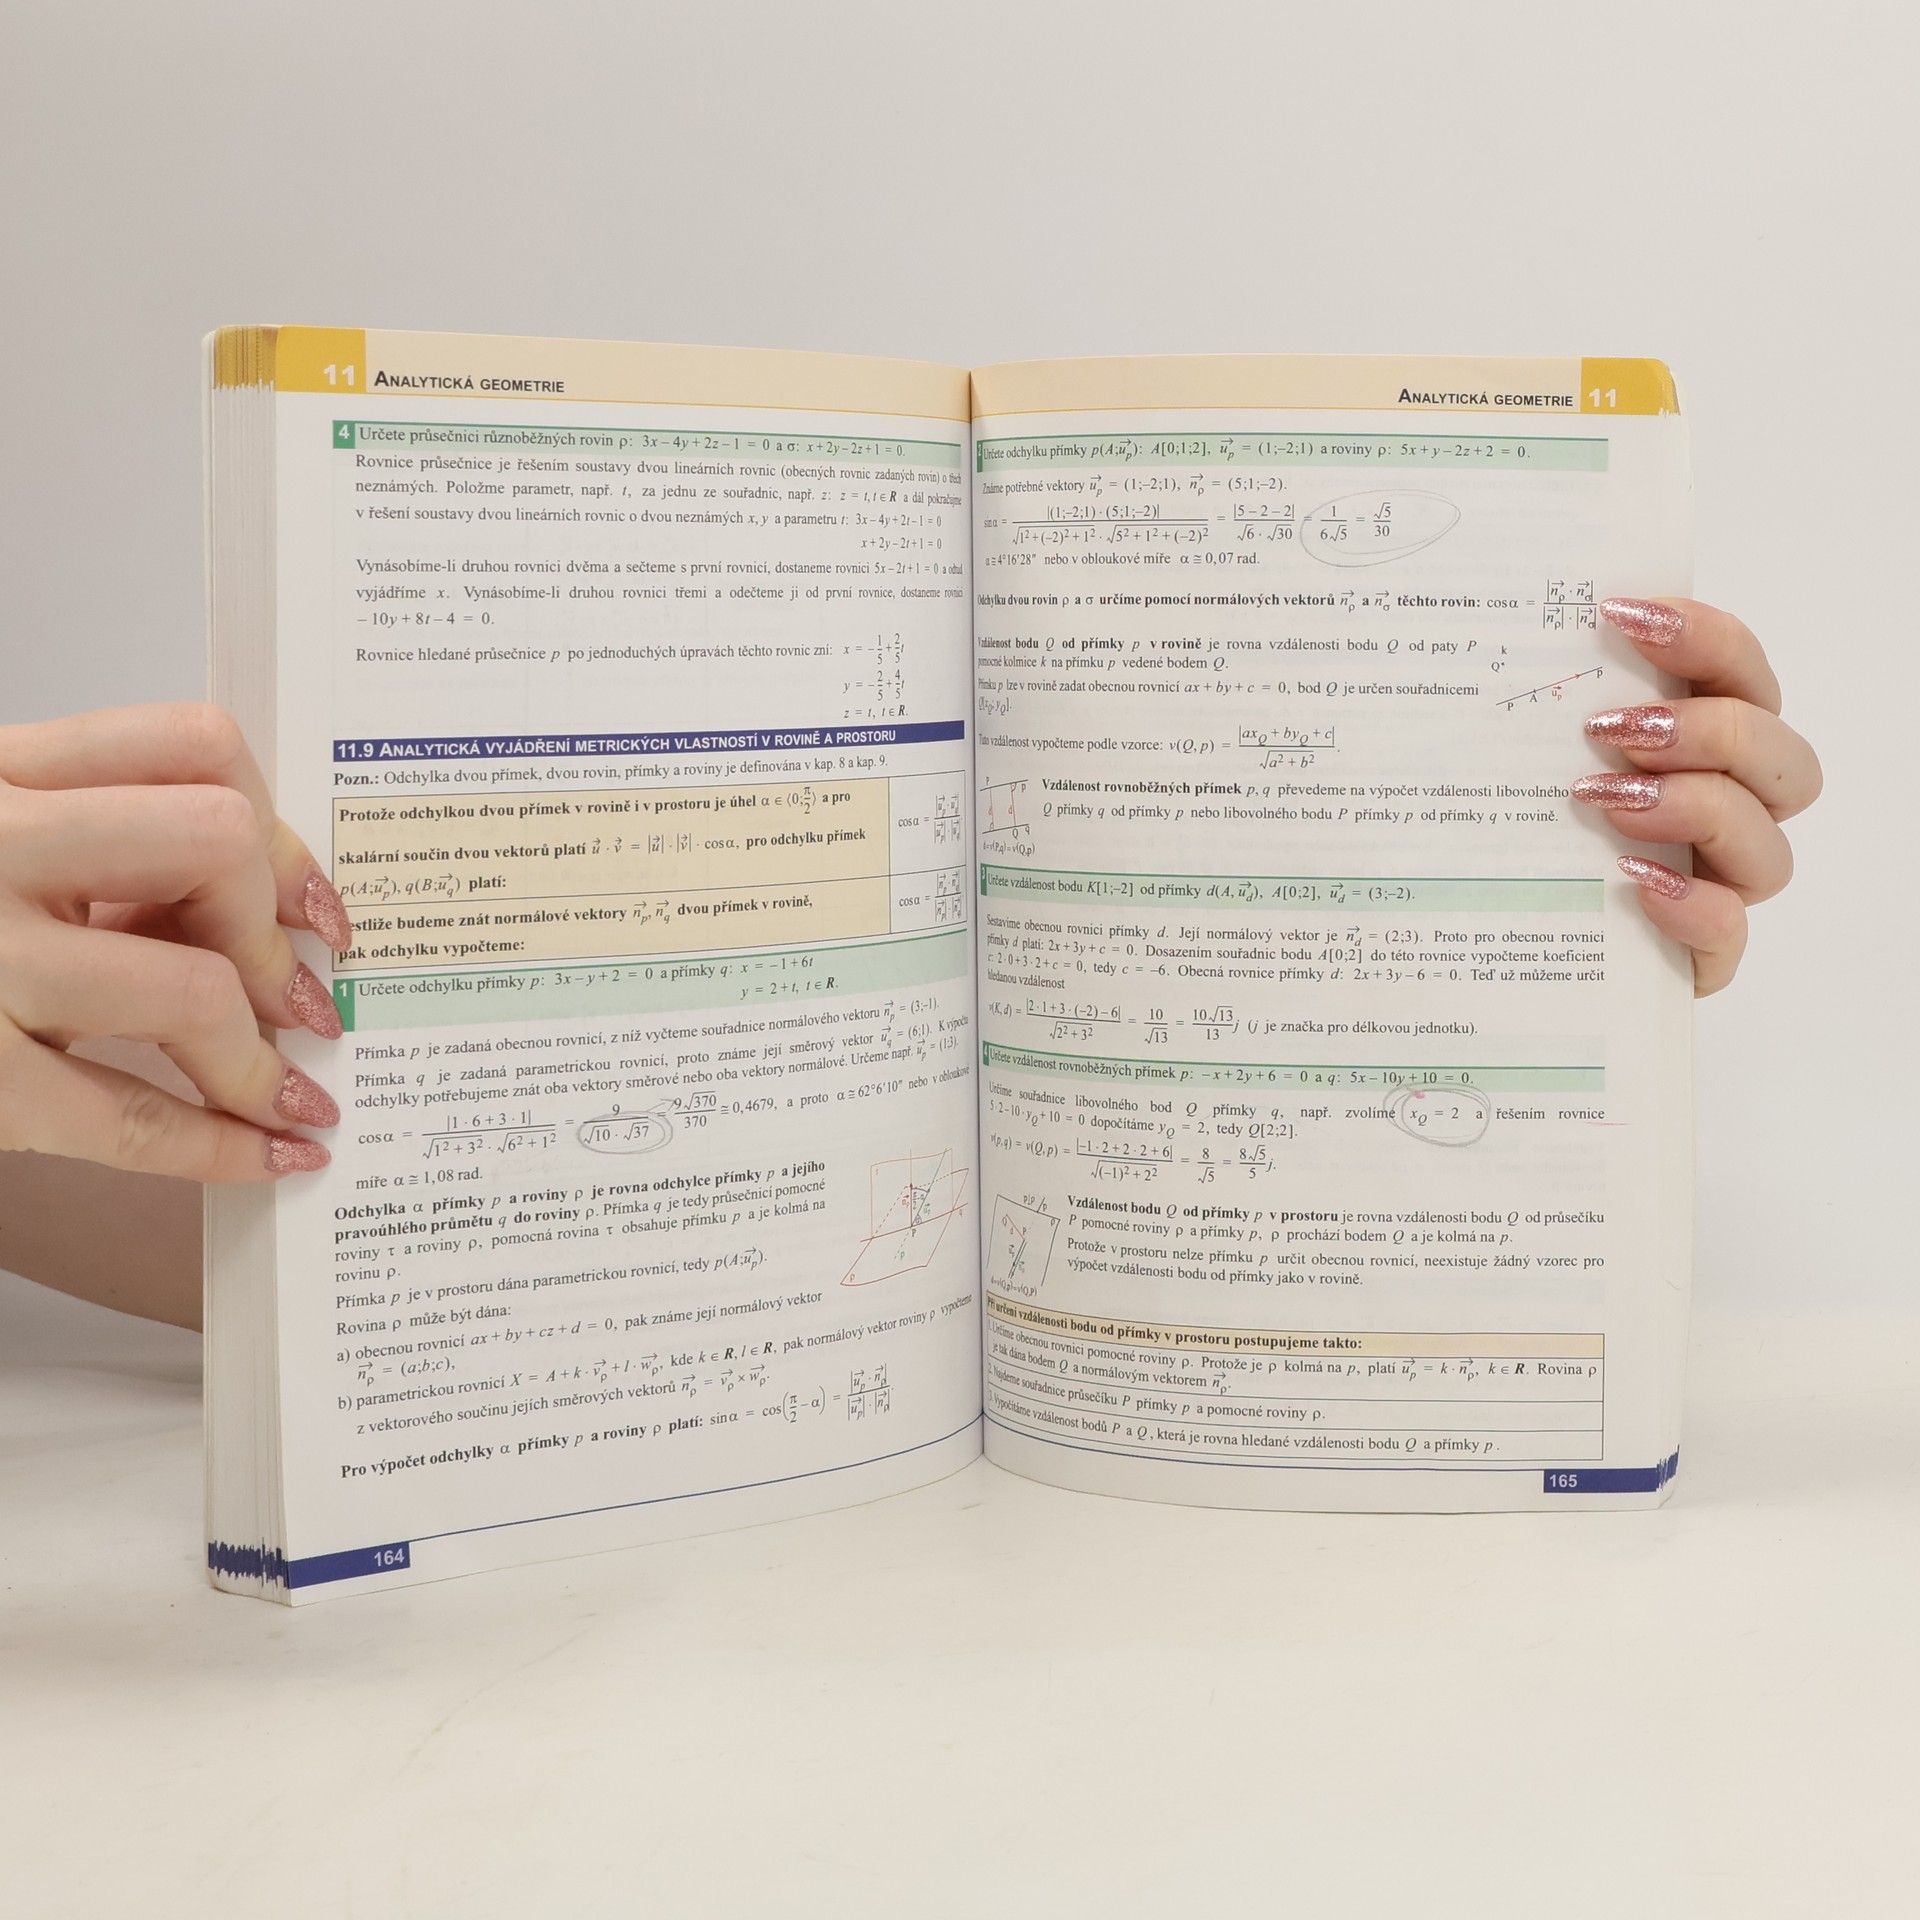 11 ANALYTICKÁ GEOMETRIE
4 Určete průsečnici různoběžných rovin ρ: 3x − 4y + 2z − 1 = 0 a σ: x + 2y − 2z + 1 = 0.
Rovnice průsečnice je řešením soustavy dvou lineárních rovnic (obecných rovnic zadaných rovin) o třech
neznámých. Položme parametr, např. t, za jednu ze souřadnic, např. z: z = t, t ∈ R a dál pokračujme
v řešení soustavy dvou lineárních rovnic o dvou neznámých x, y a parametru t: 3x − 4y + 2t − 1 = 0
x + 2y − 2t + 1 = 0
Vynásobíme-li druhou rovnici dvěma a sečteme s první rovnicí, dostaneme rovnici 5x − 2t + 1 = 0 a odtud
vyjádříme x. Vynásobíme-li druhou rovnici třemi a odečteme ji od první rovnice, dostaneme rovnici
− 10y + 8t − 4 = 0.
Rovnice hledané průsečnice p po jednoduchých úpravách těchto rovnic zní: x = −1/5 + 2/5 t
y = −2/5 + 4/5 t
z = t, t ∈ R.
11.9 ANALYTICKÁ VYJÁDŘENÍ METRICKÝCH VLASTNOSTÍ V ROVINĚ A PROSTORU
Pozn.: Odchylka dvou přímek, dvou rovin, přímky a roviny je definována v kap. 8 a kap. 9.
Protože odchylkou dvou přímek v rovině i v prostoru je úhel α ∈ ⟨0; π/2⟩ a pro
skalární součin dvou vektorů platí u⃗ · v⃗ = |u⃗| · |v⃗| · cos α, pro odchylku přímek
p(A; u⃗p), q(B; u⃗q) platí:
cos α = |u⃗p · u⃗q| / |u⃗p| · |u⃗q|
estliže budeme znát normálové vektory n⃗p, n⃗q dvou přímek v rovině,
pak odchylku vypočteme:
cos α = |n⃗p · n⃗q| / |n⃗p| · |n⃗q|
1 Určete odchylku přímky p: 3x − y + 2 = 0 a přímky q: x = −1 + 6t
y = 2 + t, t ∈ R.
Přímka p je zadaná obecnou rovnicí, z níž vyčteme souřadnice normálového vektoru n⃗p = (3;−1).
Přímka q je zadaná parametrickou rovnicí, proto známe její směrový vektor u⃗q = (6;1). K výpočtu
odchylky potřebujeme znát oba vektory směrové nebo oba vektory normálové. Určeme např. u⃗p = (1;3).
cos α = |1 · 6 + 3 · 1| / √1² + 3² · √6² + 1² = 9 / √10 · √37 = 9√370 / 370 ≅ 0,4679, a proto α ≅ 62°6′10″ nebo v obloukové
míře α ≅ 1,08 rad.
Odchylka α přímky p a roviny ρ je rovna odchylce přímky p a jejího
pravoúhlého průmětu q do roviny ρ. Přímka q je tedy průsečnicí pomocné
roviny τ a roviny ρ, pomocná rovina τ obsahuje přímku p a je kolmá na
rovinu ρ.
Přímka p je v prostoru dána parametrickou rovnicí, tedy p(A; u⃗p).
Rovina ρ může být dána:
a) obecnou rovnicí ax + by + cz + d = 0, pak známe její normálový vektor
n⃗ρ = (a;b;c),
b) parametrickou rovnicí X = A + k · v⃗ρ + l · w⃗ρ, kde k ∈ R, l ∈ R, pak normálový vektor roviny ρ vypočteme
z vektorového součinu jejích směrových vektorů n⃗ρ = v⃗ρ × w⃗ρ.
Pro výpočet odchylky α přímky p a roviny ρ platí: sin α = cos(π/2 − α) = |u⃗p · n⃗ρ| / |u⃗p| · |n⃗ρ|
164
ANALYTICKÁ GEOMETRIE 11
Určete odchylku přímky p(A; u⃗p): A[0;1;2], u⃗p = (1;−2;1) a roviny ρ: 5x + y − 2z + 2 = 0.
Známe potřebné vektory u⃗p = (1;−2;1), n⃗ρ = (5;1;−2).
sin α = |(1;−2;1) · (5;1;−2)| / √1² + (−2)² + 1² · √5² + 1² + (−2)² = |5 − 2 − 2| / √6 · √30 = 1 / 6√5 = √5 / 30
α ≅ 4°16′28″ nebo v obloukové míře α ≅ 0,07 rad.
Odchylku dvou rovin ρ a σ určíme pomocí normálových vektorů n⃗ρ a n⃗σ těchto rovin: cos α = |n⃗ρ · n⃗σ| / |n⃗ρ| · |n⃗σ|
Vzdálenost bodu Q od přímky p v rovině je rovna vzdálenosti bodu Q od paty P
pomocné kolmice k na přímku p vedené bodem Q.
k
Q
P A u⃗p p
Přímku p lze v rovině zadat obecnou rovnicí ax + by + c = 0, bod Q je určen souřadnicemi
Q[xQ; yQ].
Tuto vzdálenost vypočteme podle vzorce: v(Q, p) = |axQ + byQ + c| / √a² + b².
Vzdálenost rovnoběžných přímek p, q převedeme na výpočet vzdálenosti libovolného
Q přímky q od přímky p nebo libovolného bodu P přímky p od přímky q v rovině.
P p
d d
Q q
d=v(P,q)=v(Q,p)
Určete vzdálenost bodu K[1;−2] od přímky d(A, u⃗d), A[0;2], u⃗d = (3;−2).
Sestavíme obecnou rovnici přímky d. Její normálový vektor je n⃗d = (2;3). Proto pro obecnou rovnici
přímky d platí: 2x + 3y + c = 0. Dosazením souřadnic bodu A[0;2] do této rovnice vypočteme koeficient
c: 2·0 + 3·2 + c = 0, tedy c = −6. Obecná rovnice přímky d: 2x + 3y − 6 = 0. Teď už můžeme určit
hledanou vzdálenost
v(K, d) = |2 · 1 + 3 · (−2) − 6| / √2² + 3² = 10 / √13 = 10√13 / 13 j (j je značka pro délkovou jednotku).
4 Určete vzdálenost rovnoběžných přímek p: −x + 2y + 6 = 0 a q: 5x − 10y + 10 = 0.
Určíme souřadnice libovolného bod Q přímky q, např. zvolíme xQ = 2 a řešením rovnice
5·2 − 10·yQ + 10 = 0 dopočítáme yQ = 2, tedy Q[2;2].
v(p,q) = v(Q,p) = |−1 · 2 + 2 · 2 + 6| / √(−1)² + 2² = 8 / √5 = 8√5 / 5 j.
Vzdálenost bodu Q od přímky p v prostoru je rovna vzdálenosti bodu Q od průsečíku
P pomocné roviny ρ a přímky p, ρ prochází bodem Q a je kolmá na p.
Protože v prostoru nelze přímku p určit obecnou rovnicí, neexistuje žádný vzorec pro
výpočet vzdálenosti bodu od přímky jako v rovině.
Při určení vzdálenosti bodu od přímky v prostoru postupujeme takto:
1. Určíme obecnou rovnici pomocné roviny ρ. Protože je ρ kolmá na p, platí u⃗p = k · n⃗ρ, k ∈ R. Rovina ρ
je tak dána bodem Q a normálovým vektorem n⃗ρ.
2. Najdeme souřadnice průsečíku P přímky p a pomocné roviny ρ.
3. Vypočítáme vzdálenost bodů P a Q, která je rovna hledané vzdálenosti bodu Q a přímky p.
165